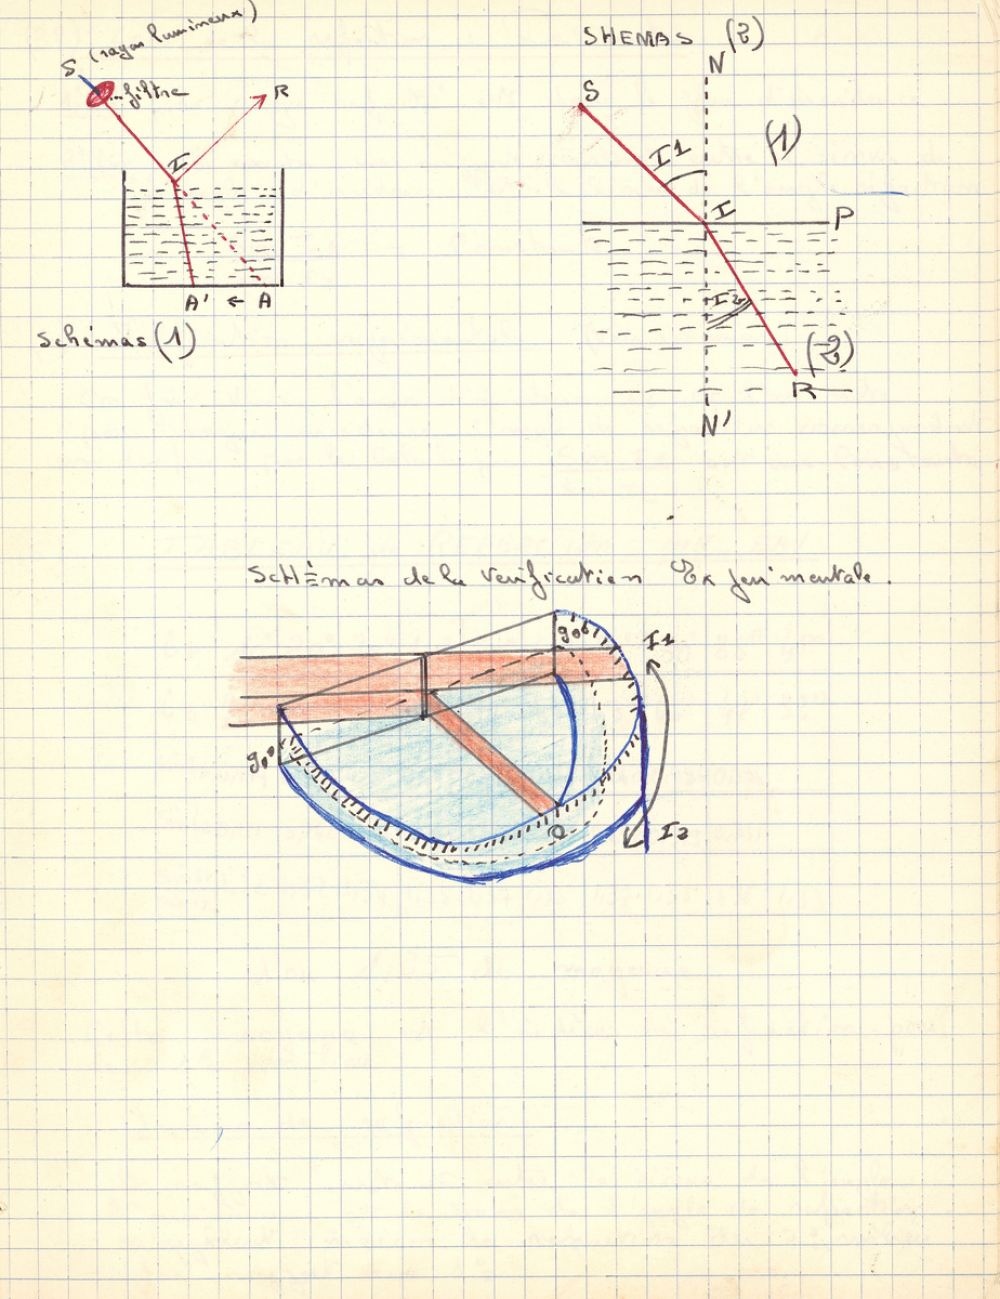 S (rayon lumineux)
...filtre
R
I
A' ← A
Schémas (1)
SHEMAS (2)
N
S
(1)
I1
I
P
I2
(2)
R
N'
SCHÉmas de la verification Experimentale.
90°
I1
90°
0
I2